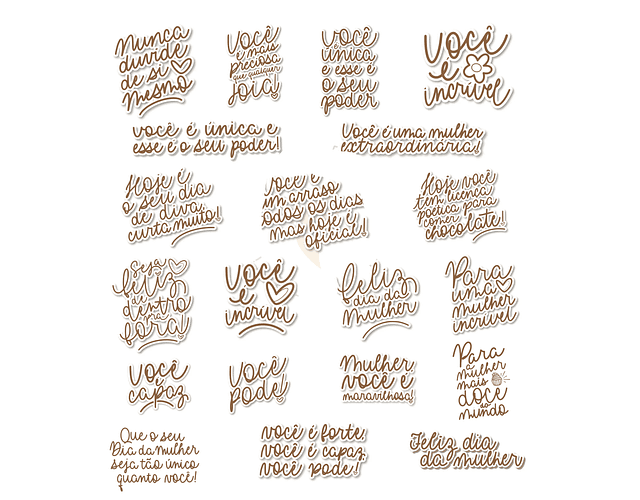 Nunca
duvide
de si
mesmo
Você
é mais
preciosa
que qualquer
joia!
Você
única
e esse é
o seu
poder
Você
é
incrível
você é única e
esse é o seu poder!
Você é uma mulher
extraordinária!
Hoje é
o seu dia
de diva,
curta muito!
você é
um arraso
odos os dias
mas hoje é
oficial!
Hoje você
tem licença
poética para
comer
chocolate!!
Seja
feliz
de
dentro
pra
fora!
Você
é
incrível
feliz
dia da
mulher
Para
uma
mulher
incrível
Você é
capaz
Você
pode!
Mulher
você é
maravilhosa!
Para
a mulher
mais
doce
do
mundo
Que o seu
Dia da mulher
seja tão único
quanto você!
você é forte,
você é capaz,
você pode!
Feliz dia
da mulher